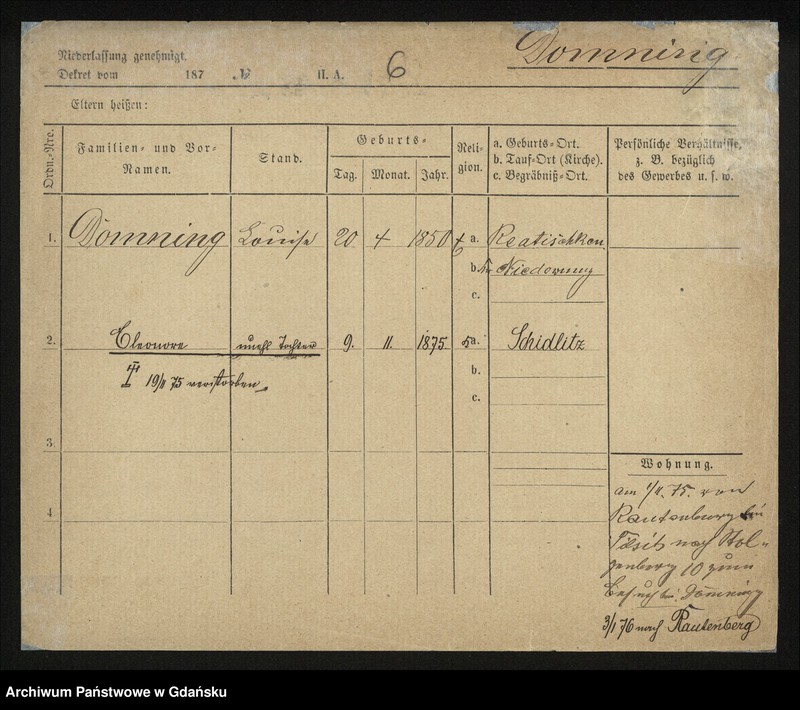 Domning
Niederlassung genehmigt.
Dekret vom 187 . II. A. 6
Eltern heißen:
Ordn.-Nre.
Familien- und Vor-Namen.
Stand.
Geburts-
Tag. Monat. Jahr.
Reli-gion.
a. Geburts-Ort.
b. Tauf-Ort (Kirche).
c. Begräbniß-Ort.
Persönliche Verhältnisse,
z. B. bezüglich
des Gewerbes u. s. w.
1. Domning Louise 20 4 1850 a.
b. Niederung
c.
2. Eleonore unehl Tochter 9. 11. 1875. a. Schidlitz
19/11 75 verstorben.
b.
c.
3.
4
Wohnung.
am 1/11. 75. von
Rautenburg bei
Tilsit nach Stol-
zenberg 10 zum
Besuch bei Domning
3/1 76 nach Rautenberg
Archiwum Państwowe w Gdańsku